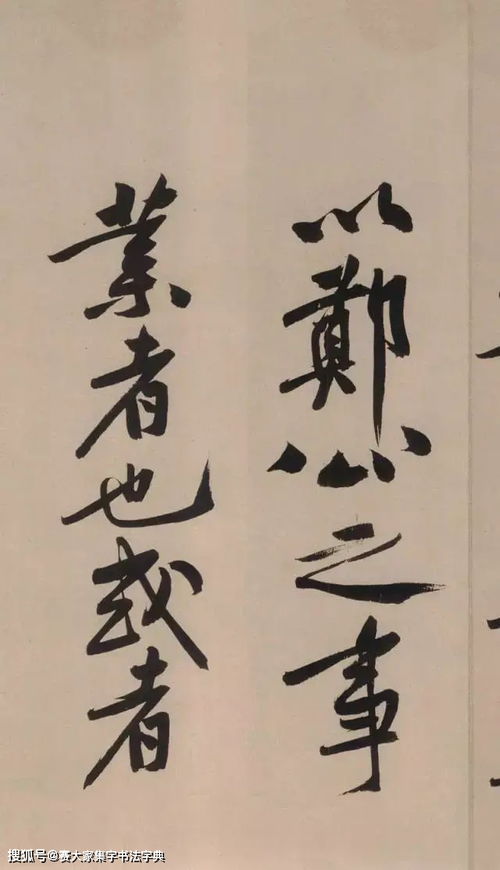 以鄭公之事
業者也或者
搜狐号@赛大家集字书法字典